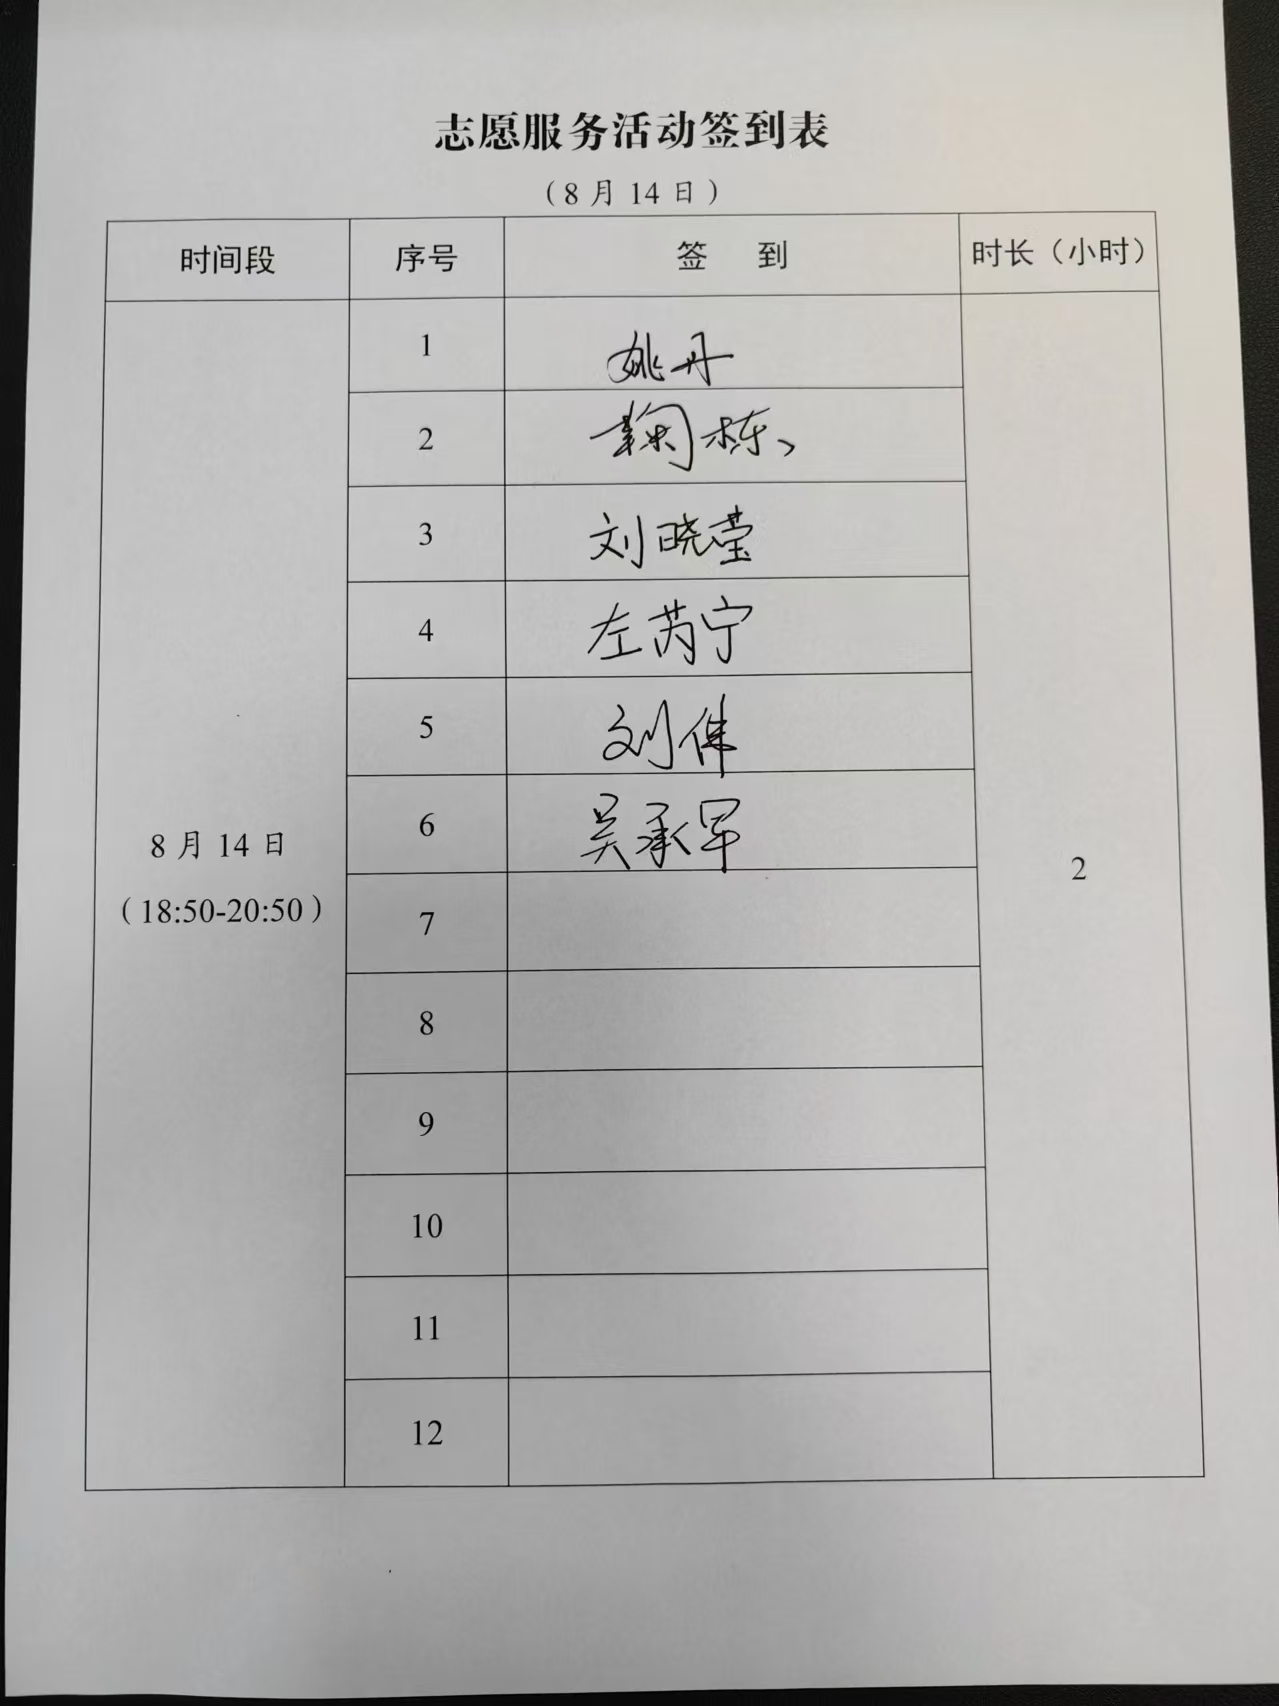 志愿服务活动签到表
（8 月 14 日）
时间段 序号 签 到 时长（小时）
1 姚丹
2 鞠栋
3 刘晓莹
4 左芮宁
5 刘伟
6 吴承罕
8 月 14 日
（18:50-20:50）
2
7
8
9
10
11
12